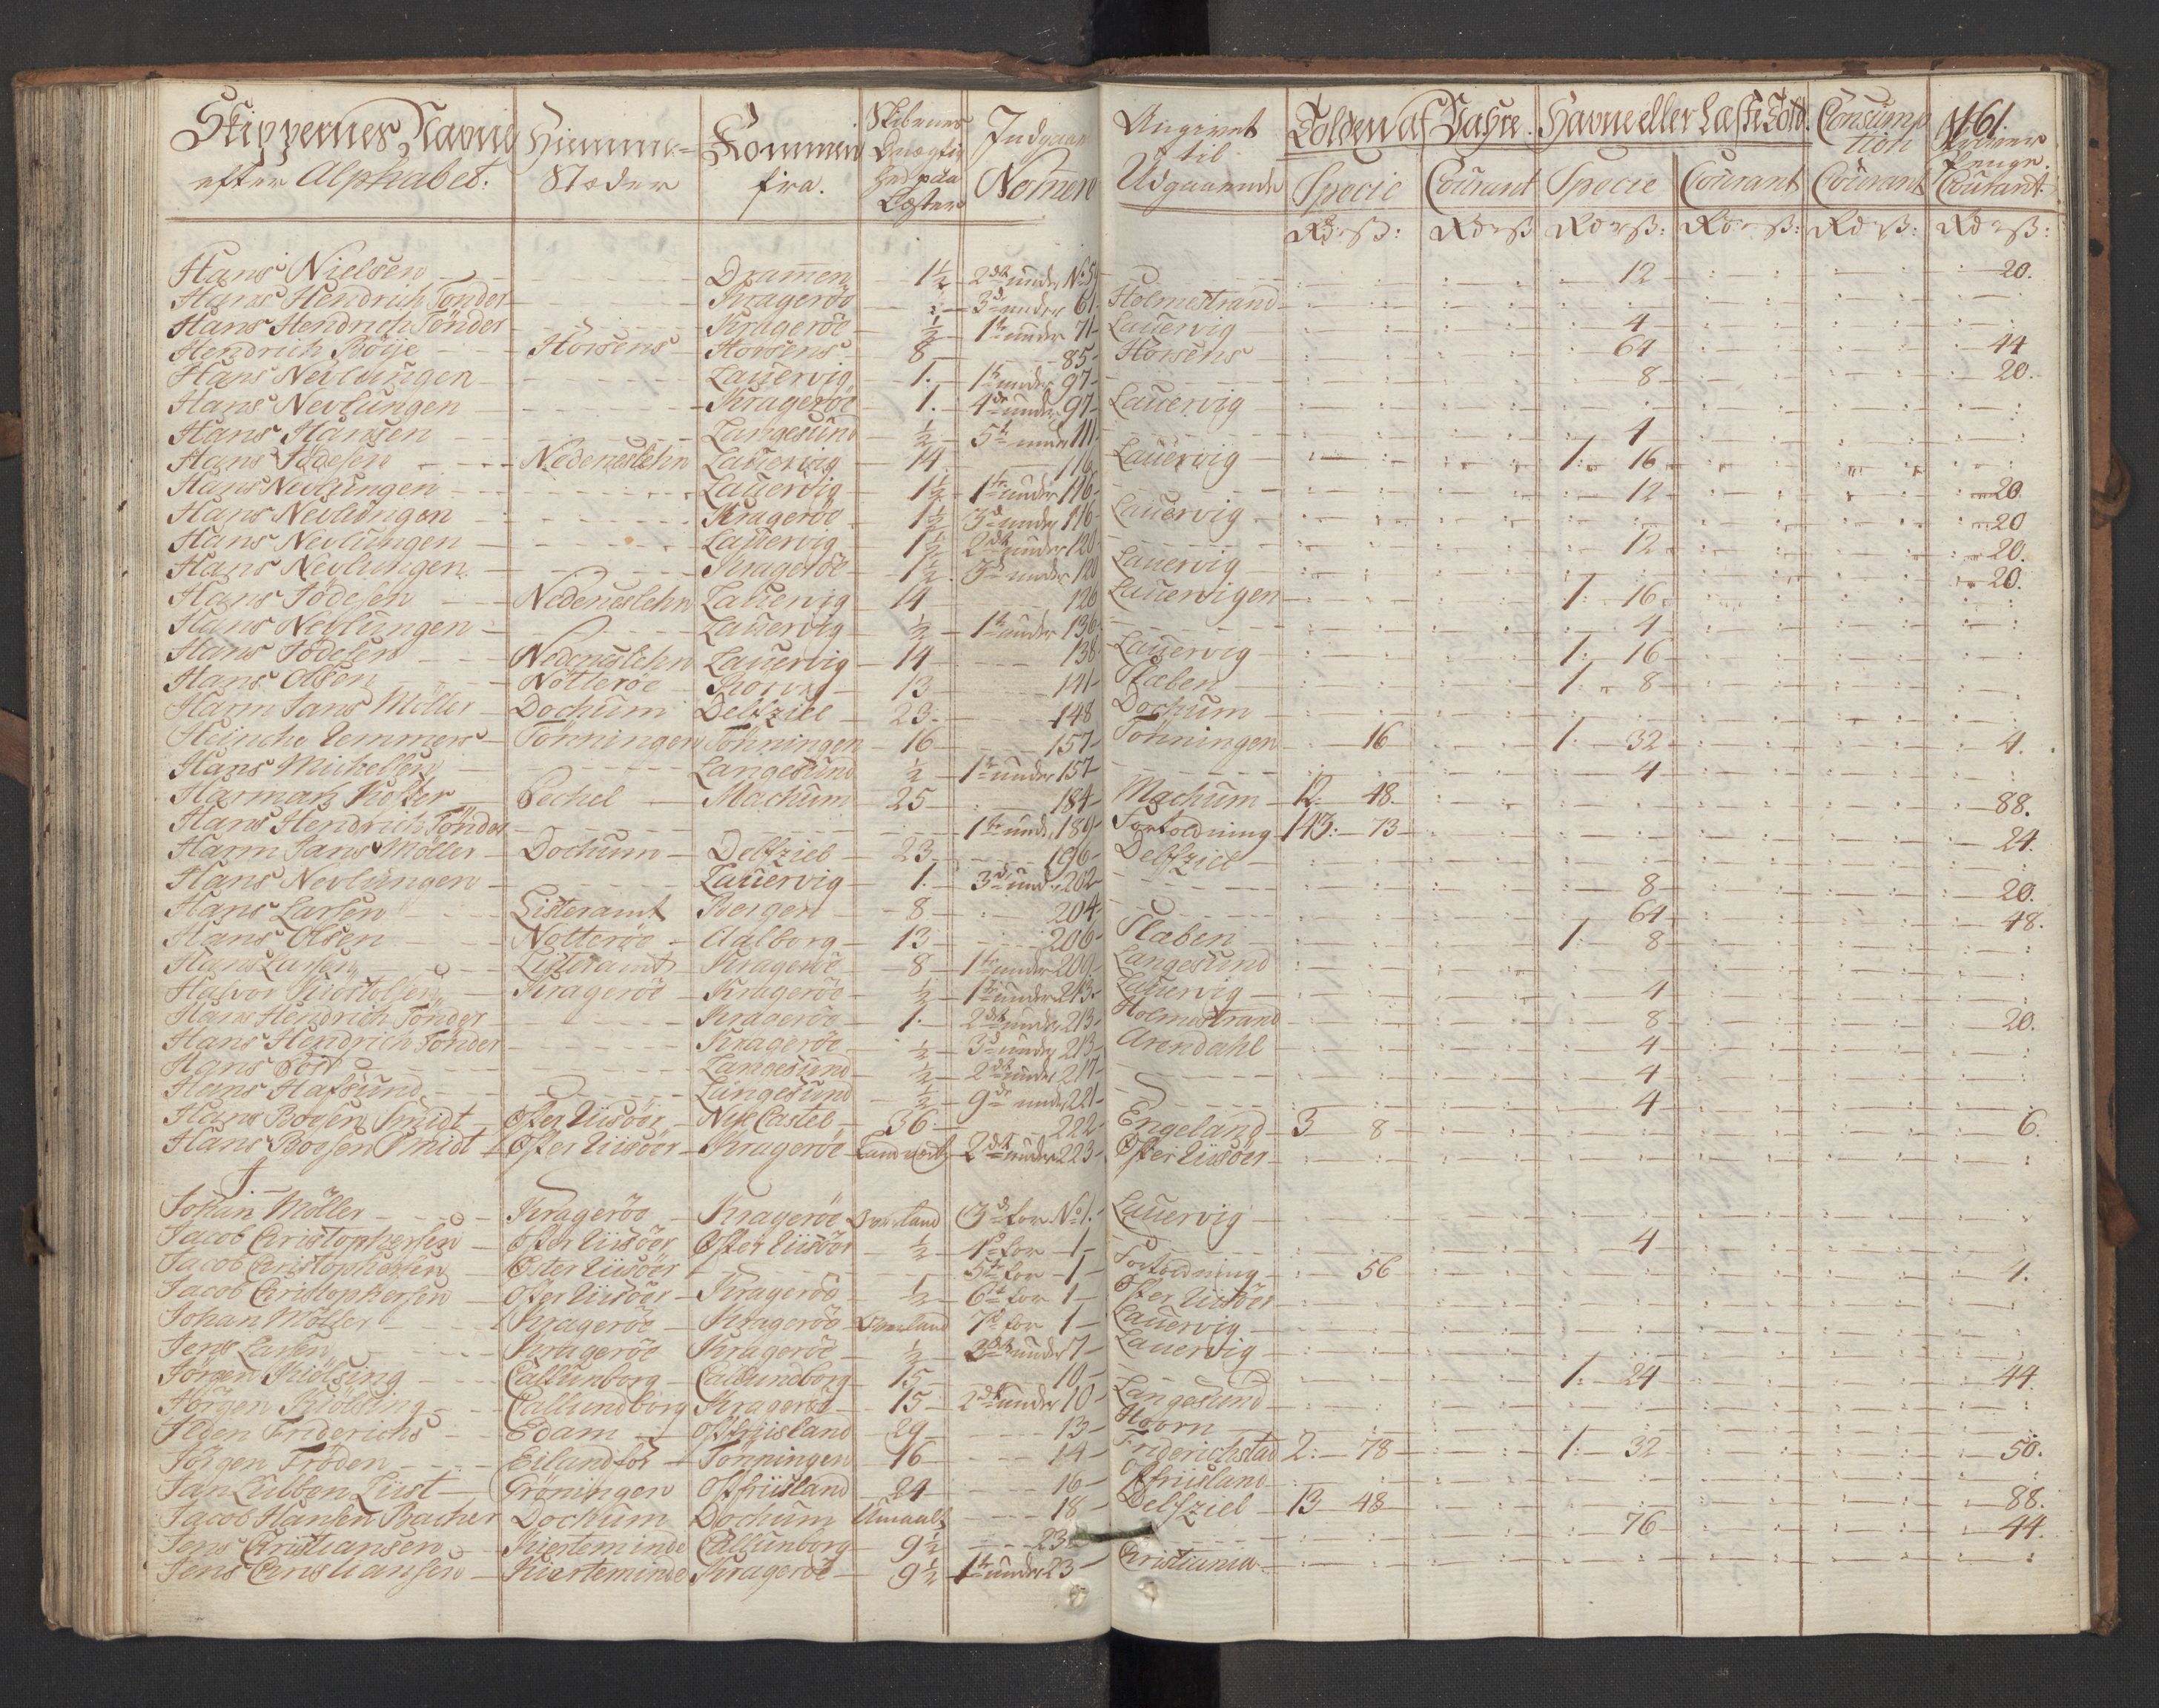 161.
Skippernes Navne efter Alphabet: | Hiemme-Stæder | Kommen fra. | Skibenes Drægtighed paa Læster | Indgaaende Nomere | Angivet til Udgaaende | Tolden af Vahre. Specie | Courant | Havne eller Læste Told. Specie | Courant | Consumption Courant | Penge. Courant.
Hans Nielsen | Dramen | 1½ | 2de under No 5 | 12 | 20.
Hans Hendrich Tönder | Krageröe | 3de under 61 | Holmestrand
Hans Hendrich Tönder | Krageröe | ½ | 1te under 71 | Lauervig | 4
Hendrich Böije | Horsens | Horsens | 8 | 85 | Horsens | 64 | 44
Hans Nevlungen | Lauervig | 1. | 1te under 97 | 8 | 20.
Hans Nevlungen | Krageröe | 1. | 4de under 97 | Lauervig
Hans Hansen | Langesund | ½ | 5te under 111 | 4
Hans Tödesen | Nedeneslehn | Lauervig | 14 | 116 | Lauervig | 1: 16
Hans Nevlungen | Lauervig | 1½ | 1te under 116 | 12 | 20
Hans Nevlungen | Krageröe | 1½ | 3de under 116 | Lauervig | 20
Hans Nevlungen | Lauervig | 1½ | 2de under 120 | 12 | 20.
Hans Nevlungen | Krageröe | 1½ | 3de under 120 | Lauervig | 20.
Hans Tödesen | Nedeneslehn | Lauervig | 14 | 126 | Lauervigen | 1: 16
Hans Nevlungen | Lauervig | ½ | 1te under 136 | 4
Hans Tödesen | Nedeneslehn | Lauervig | 14 | 138 | Lauervig | 1: 16
Hans Olsen | Nötteröe | 13 | 141 | Staben | 1: 8
Harm Jans Möller | Dochum | Delfziel | 23. | 148 | Dochum
Heinche Lemmers | Tönningen | Tönningen | 16 | 157 | Tönningen | 16 | 1: 32 | 4.
Hans Michelsen | Langesund | ½ | 1te under 157 | 4
Harman Kolter | Pechel | Machum | 25 | 184 | Machum | 12. 48 | 88.
Hans Hendrich Tönder | 1te under 189 | Fortoldning | 143: 73 | 24.
Harm Jans Möller | Dochum | Delfziel | 23. | 196 | Delfziel
Hans Nevlungen | Lauervig | 1. | 3de under 202 | 8 | 20.
Hans Larsen | Listeramt | Bergen | 8 | 204 | 64 | 48.
Hans Olsen | Nötteröe | Aalborg | 13 | 206 | Staben | 1: 8
Hans Larsen | Listeramt | Krageröe | 8 | 1te under 209 | Langesund
Halvor | Krageröe | Krageröe | ½ | 1te under 213 | Lauervig | 4
Hans Hendrich Tönder | Krageröe | 1. | 2de under 213 | Holmestrand | 8 | 20.
Hans Hendrich Tönder | Krageröe | ½ | 3de under 213 | Arendahl | 4
Hans | Langesund | ½ | 2de under 217 | 4
Hans Hafsund | Langesund | ½ | 9de under 221 | 4
Hans Boesen Smidt | Öster Riisöer | Nye Castel | 36. | 222 | Engeland | 3 8 | 6.
Hans Boesen Smidt | Öster Riisöer | Krageröe | 2de under 223 | Öster Riisöer
J.
Johan Möller | Krageröe | Krageröe | Overland | 3de for No 1. | Lauervig
Jacob Christophersen | Öster Riisöer | Öster Riisöer | ½ | 4de for 1 | 4
Jacob Christophersen | Öster Riisöer | 5te for 1 | Fortoldning | 56 | 4.
Jacob Christophersen | Öster Riisöer | Krageröe | ½ | 6te for 1 | Öster Riisöer
Johan Möller | Krageröe | Krageröe | Overland | 7de for 1 | Lauervig
Jens Larsen | Krageröe | Krageröe | ½ | 2de under 7 | Lauervig
Jörgen Kiölsing | Callunborg | Callundborg | 15 | 10 | 1: 24 | 44.
Jörgen Kiölsing | Callundborg | Krageröe | 15 | 2de under 10 | Langesund
Ilden Friderichs | Edam | Ostfriisland | 29 | 13 | Hoorn
Jörgen Fröden | Eilandför | Tönningen | 16 | 14 | Friderichstad | 2: 78 | 1: 32 | 50.
Jan Lubben Lüst | Gröningen | Ostfriisland | 24 | 16 | Ostfriisland
Jacob Hansen Backer | Dochum | Dochum | Umaalt | 18 | Delfziel | 13 48 | 88.
Jens Christiansen | Kierteminde | Callunborg | 9½ | 23 | 76 | 44.
Jens Christiansen | Kierteminde | Krageröe | 9½ | 1te under 23 | Christiania